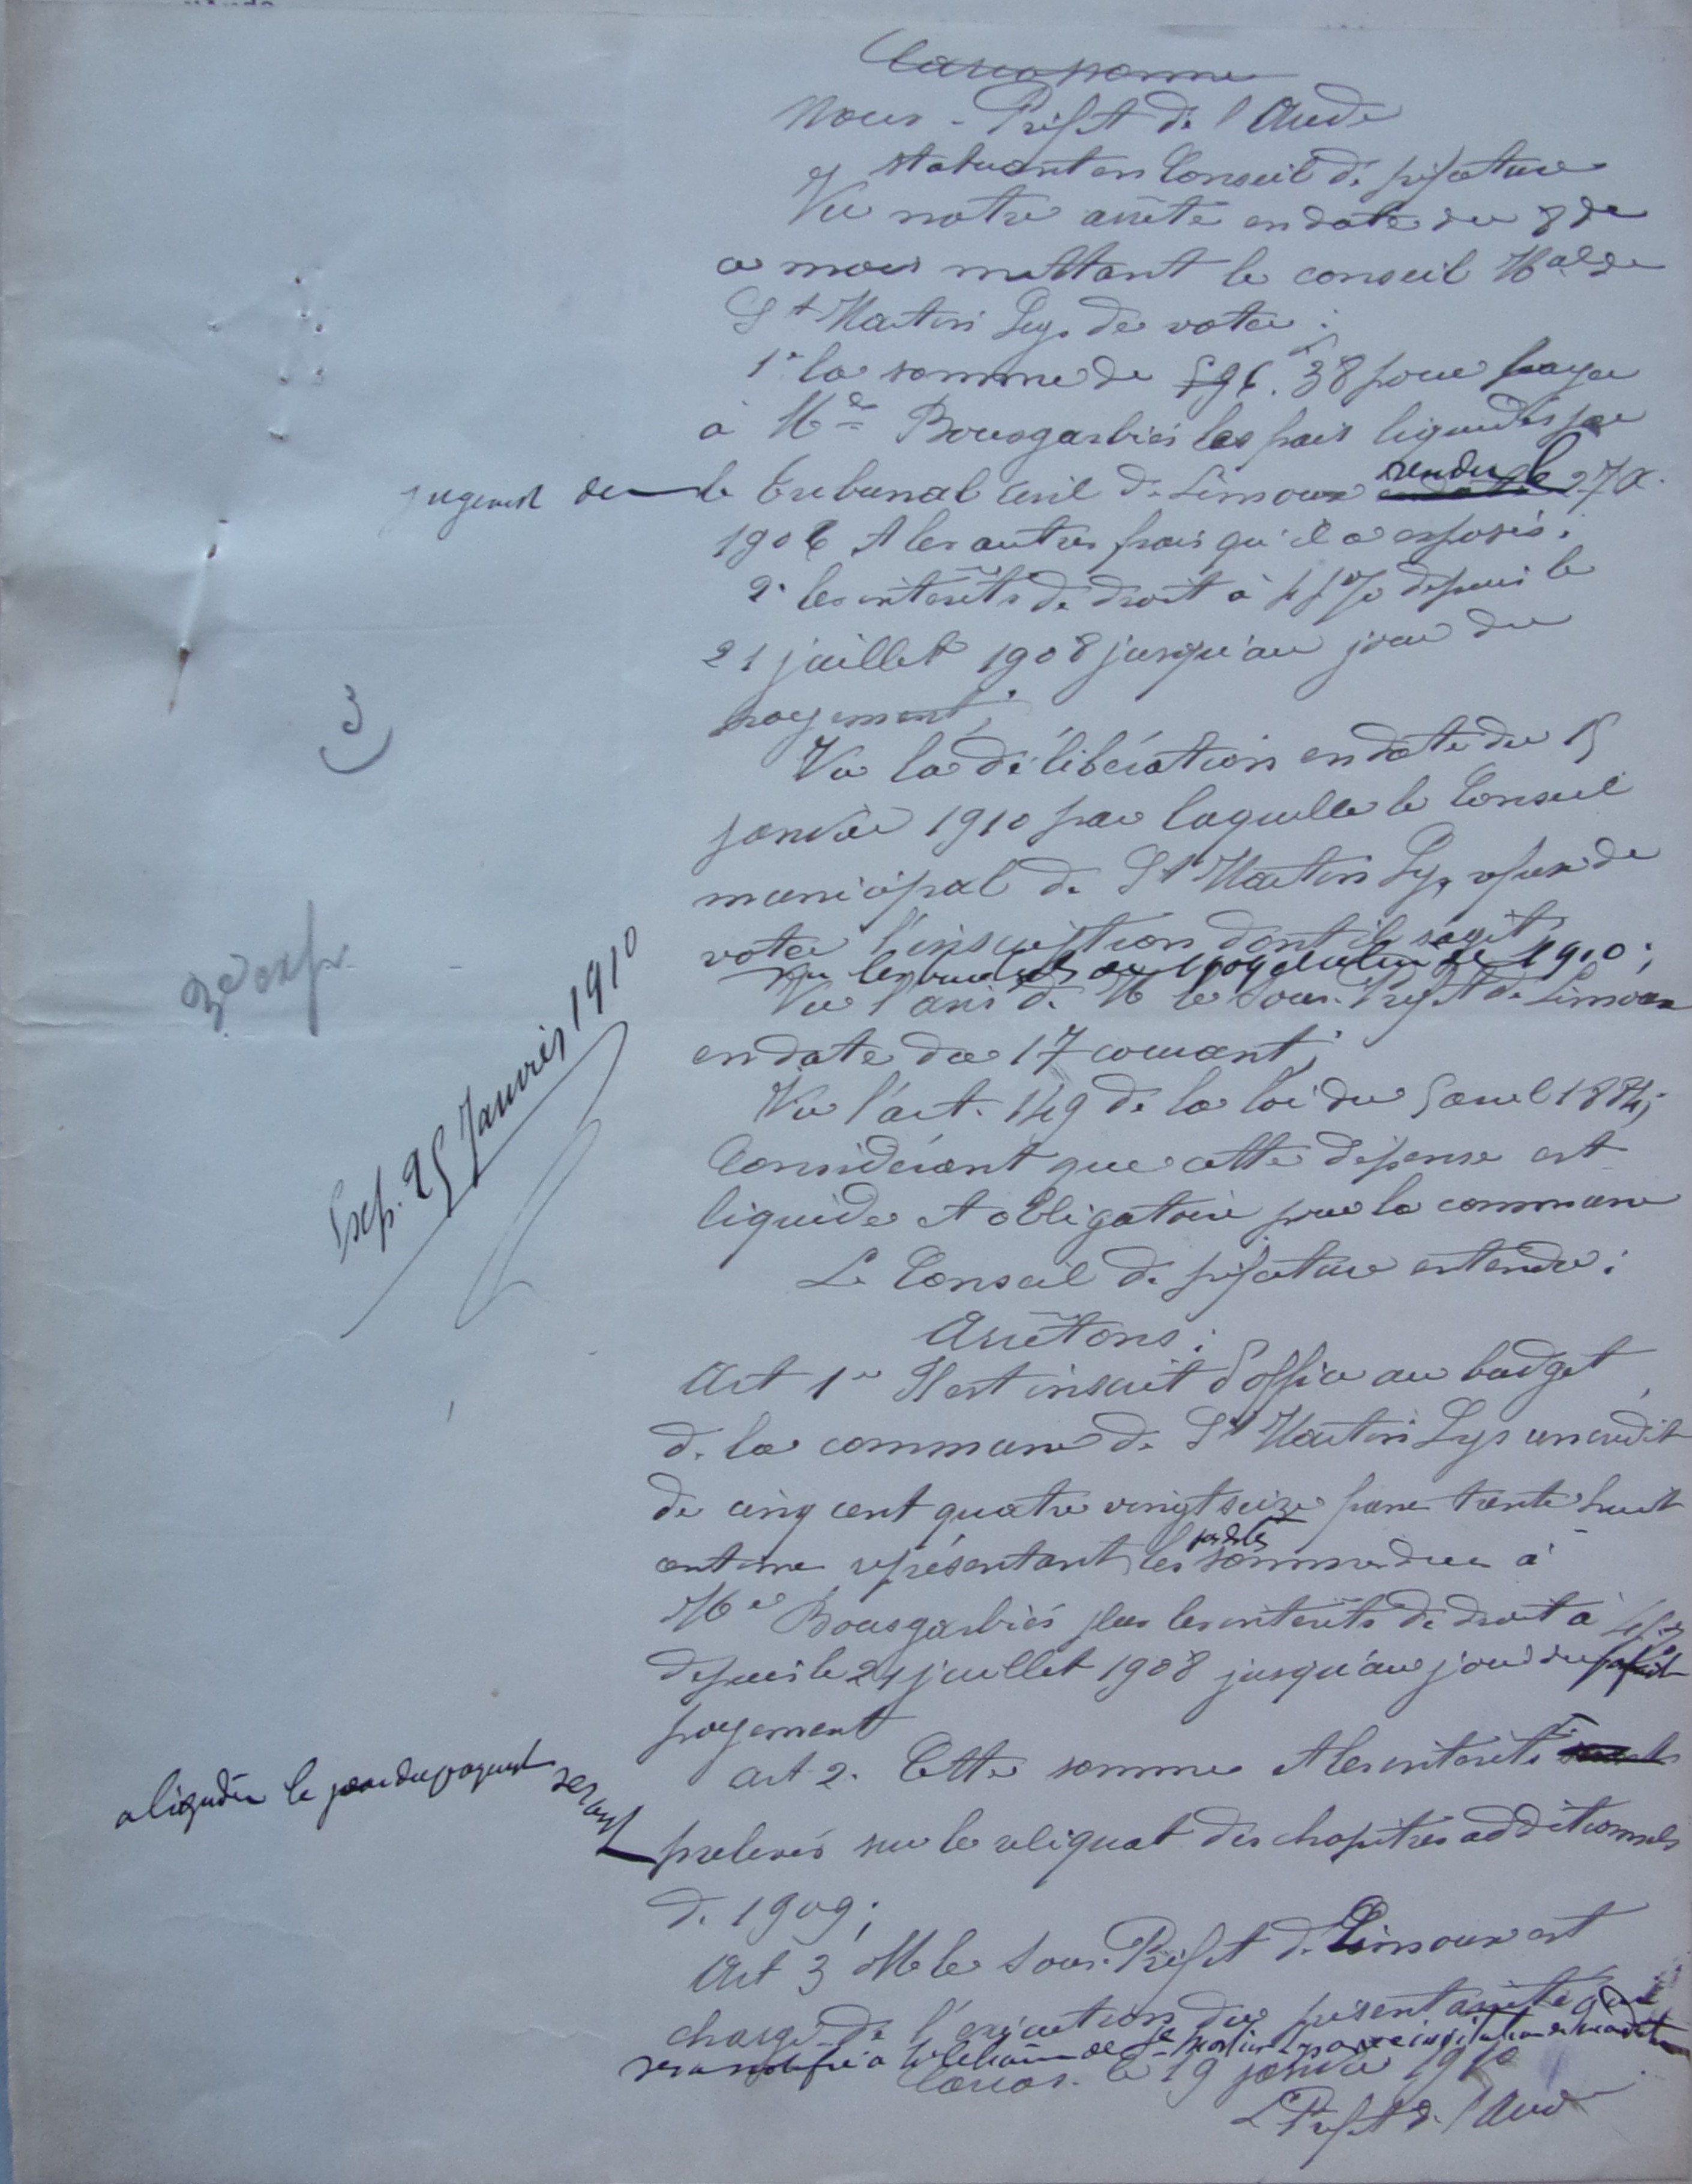 Carcassonne
Nous - Préfet de l'Aude
statuant en Conseil de préfecture
Vu notre arrêté en date du 8 de
ce mois mettant le conseil Mal de
St Martin Lys de voter :
1° la somme de 596f.38 pour payer
à Me Bousgarbiès les frais liquidés par
jugement du le tribunal civil de Limoux rendu le 27 X.
1906 et les autres frais qu'il a exposés ;
2° les intérêts de droit à 4 % depuis le
21 juillet 1908 jusqu'au jour du
payement ;
Vu la délibération en date du 15
janvier 1910 par laquelle le Conseil
municipal de St Martin Lys refuse de
voter l'inscription dont il s'agit
Vu les budgets de 1909 et celui de 1910 ;
Vu l'avis de M le Sous-Préfet de Limoux
en date du 17 courant ;
Vu l'art. 149 de la loi du 5 avril 1884 ;
Considérant que cette dépense est
liquide et obligatoire pour la commune
Le Conseil de préfecture entendu ;
Arrêtons :
Art 1er Il est inscrit d'office au budget
de la commune de St Martin Lys un crédit
de cinq cent quatre vingt seize francs trente huit
centimes représentant les sommes dues à
Me Bousgarbiès plus les intérêts de droit à
depuis le 21 juillet 1908 jusqu'au jour du parfait
payement
Art 2. Cette somme et les intérêts
à liquider le jour du payement seront
prélevés sur le reliquat des chapitres additionnels
de 1909 ;
Art 3 M le Sous-Préfet de Limoux est
chargé de l'exécution du présent arrêté qui
sera notifié à M le Maire de St Martin Lys avec invitation de mandater
Carcas. le 19 janvier 1910
Le Préfet de l'Aude
3
3 exp.
Exp. 25 Janvier 1910